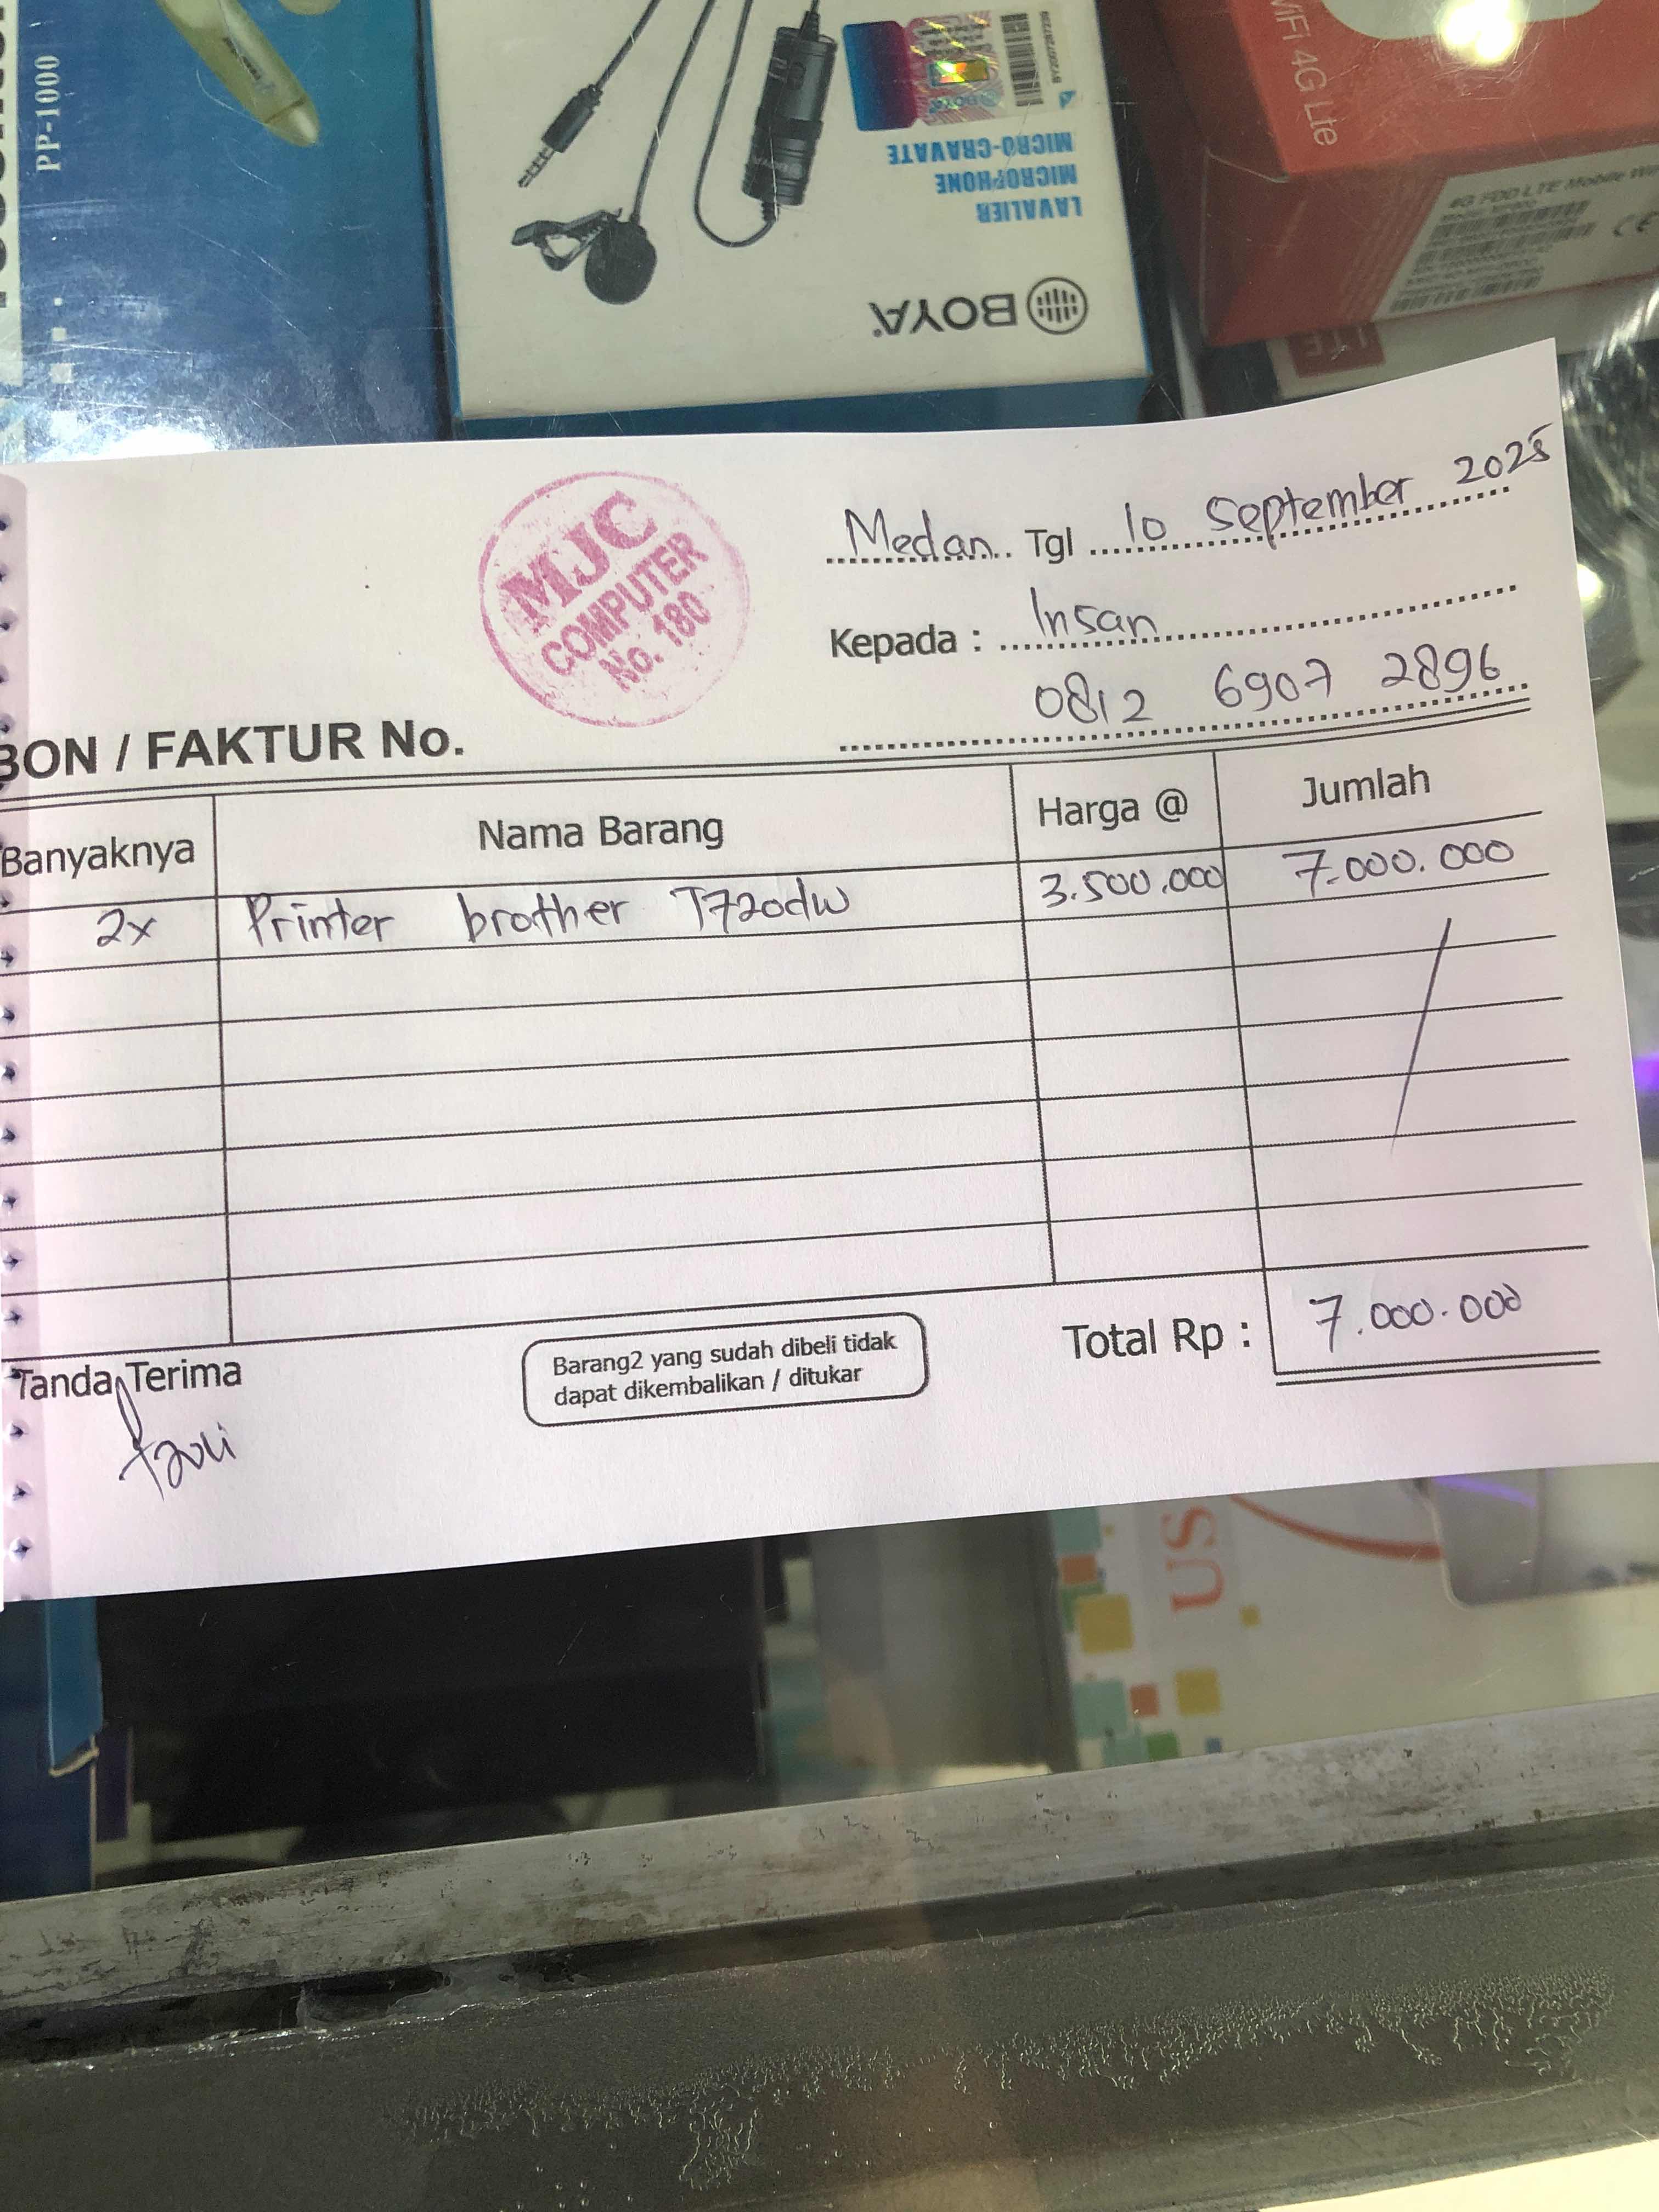 PP-1000
LAVALIER
MICROPHONE
MICRO-CRAVATE
BOYA
WiFi 4G Lte
4G FDD LTE Mobile
LTE
MJC
COMPUTER
No. 180
Medan Tgl 10 September 2025
Kepada : Insan
0812 6907 2896
BON / FAKTUR No.
Banyaknya Nama Barang Harga @ Jumlah
2x Printer brother T720dw 3.500.000 7.000.000
Total Rp : 7.000.000
Tanda Terima
Barang2 yang sudah dibeli tidak
dapat dikembalikan / ditukar
US